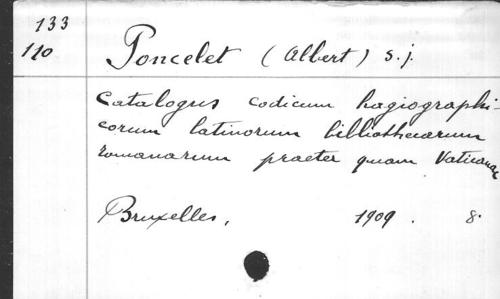 133
110
Poncelet (Albert) S.j.
Catalogus codicum hagiographi-
corum latinorum bibliothecarum
romanarum praeter quam Vaticanae
Bruxelles, 1909. 8.